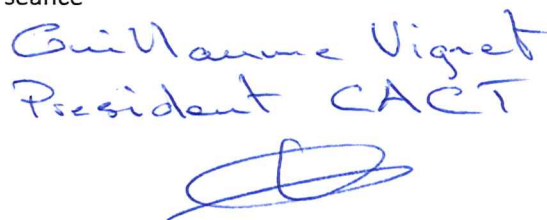 séance
Guillaume Vignet
President CACT